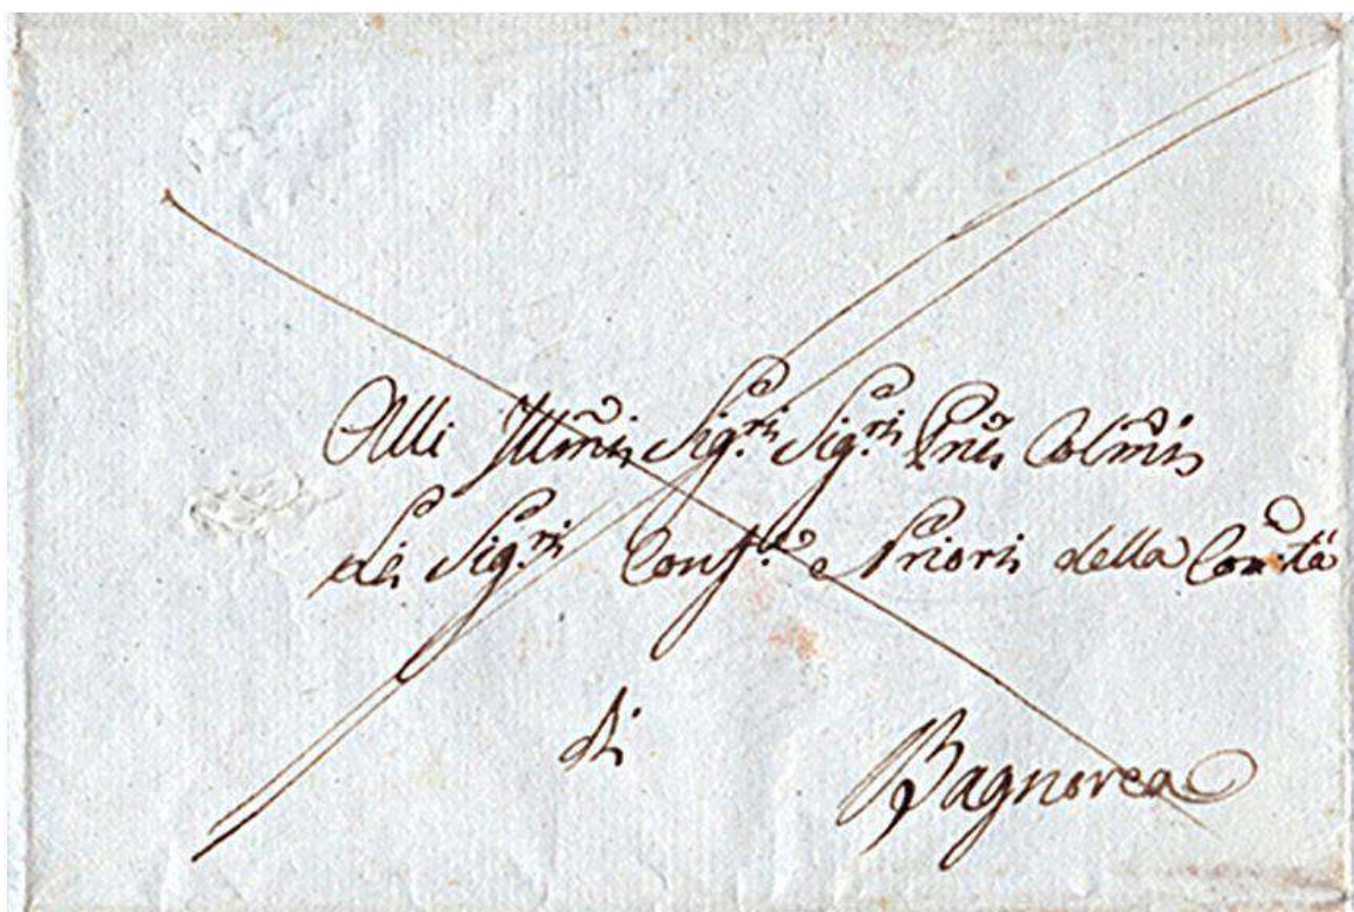 Alli Illmi Sig.ri Sig.ri Pni Colmi
Li Sig.ri Conf.e e Priori della Com̃tà
di
Bagnorea